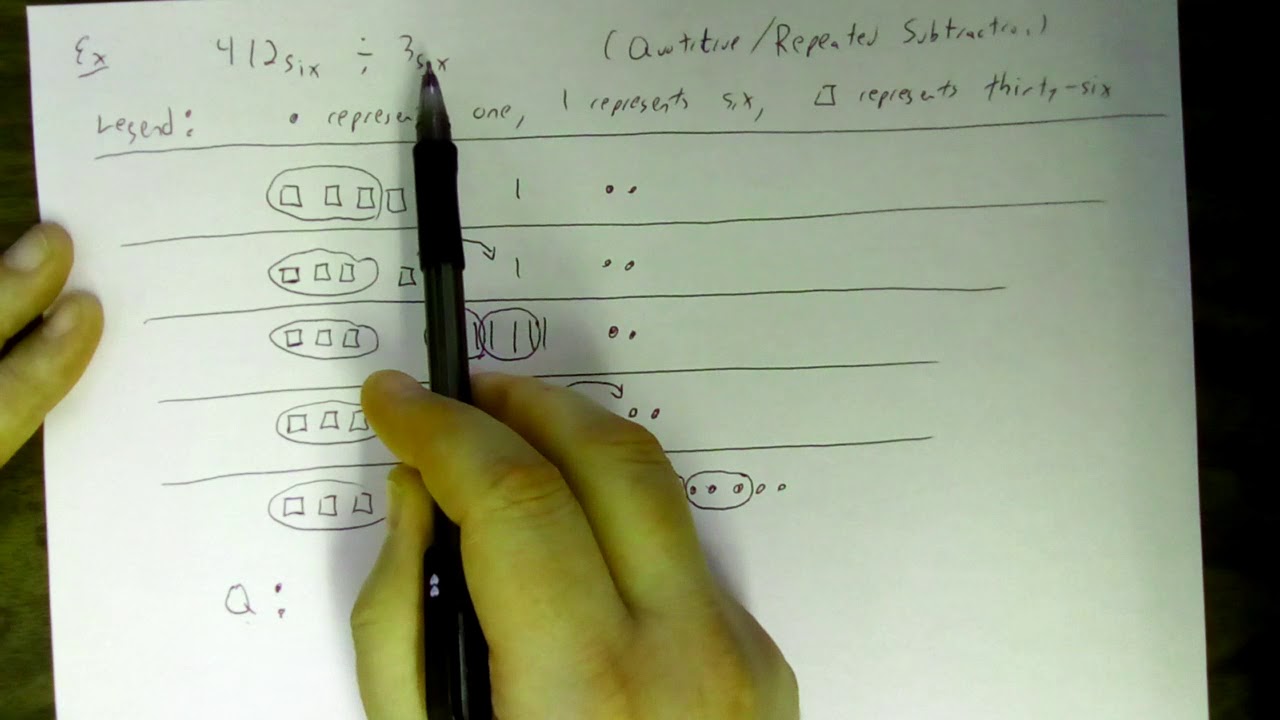 Ex 412six ÷ 3six (Quotitive/Repeated Subtraction)
Legend: • represents one, | represents six, □ represents thirty-six
Q: